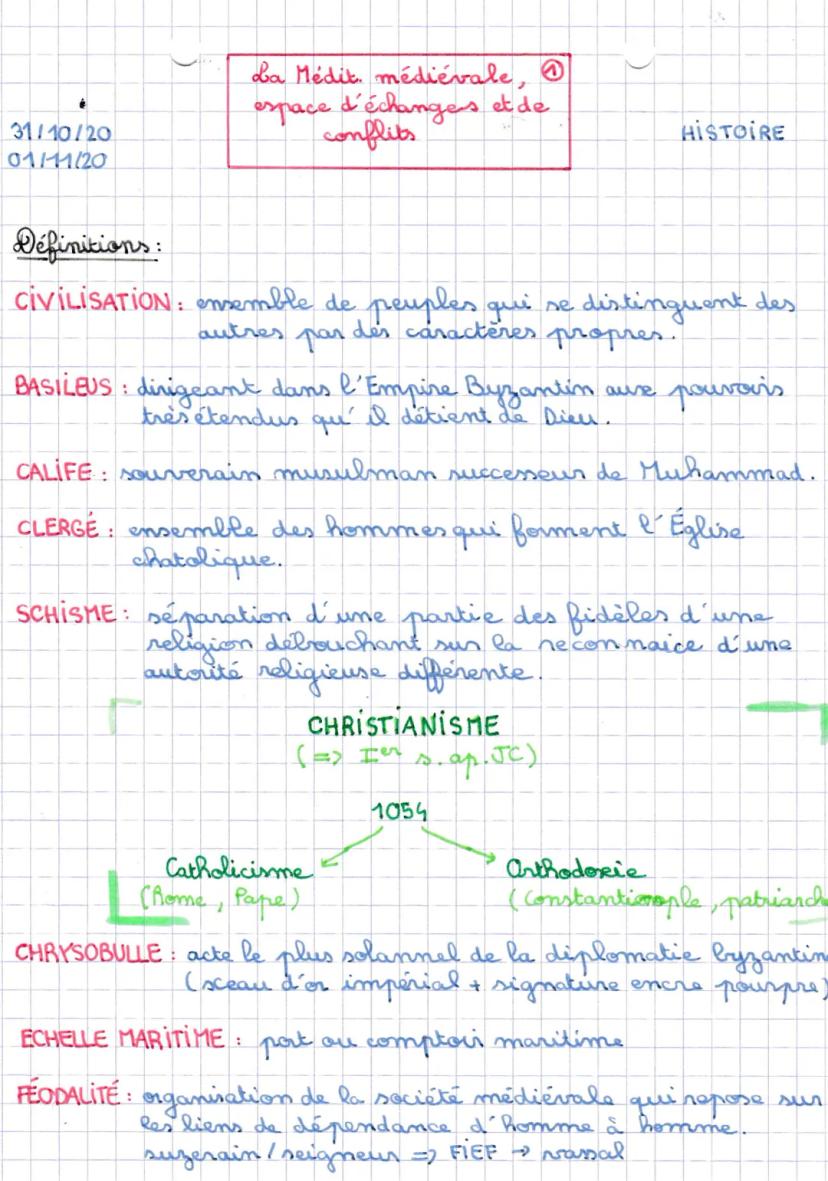 La Médit. médiévale, ①
espace d'échanges et de
conflits
31/10/20
01/11/20
HISTOIRE
Définitions :
CIVILISATION : ensemble de peuples qui se distinguent des
autres par des caractères propres.
BASILEUS : dirigeant dans l'Empire Byzantin aux pouvoirs
très étendus qu'il détient de Dieu.
CALIFE : souverain musulman successeur de Muhammad.
CLERGÉ : ensemble des hommes qui forment l'Église
chatolique.
SCHISME : séparation d'une partie des fidèles d'une
religion débouchant sur la reconnaice d'une
autorité religieuse différente.
CHRISTIANISME
(=> Ier s. ap. JC)
1054
Catholicisme Orthodoxie
(Rome, Pape) (Constantinople, patriarch
CHRYSOBULLE : acte le plus solannel de la diplomatie byzantin
(sceau d'or impérial + signature encre pourpre)
ECHELLE MARITIME : port ou comptoir maritime
FÉODALITÉ : organisation de la société médiévale qui repose sur
les liens de dépendance d'homme à homme.
suzerain / seigneur => FIEF → vassal